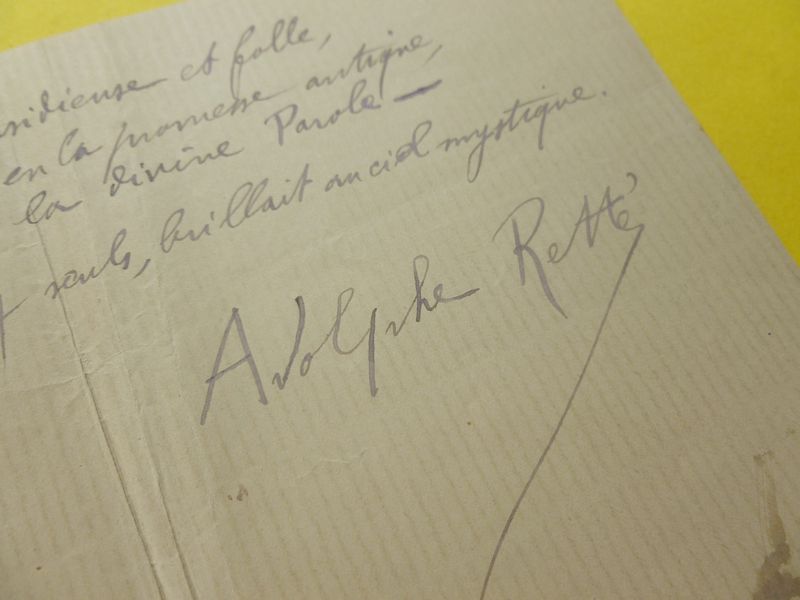 et folle,
en la promesse antique,
la divine Parole —
seuls, brillait au ciel mystique.
Adolphe Retté